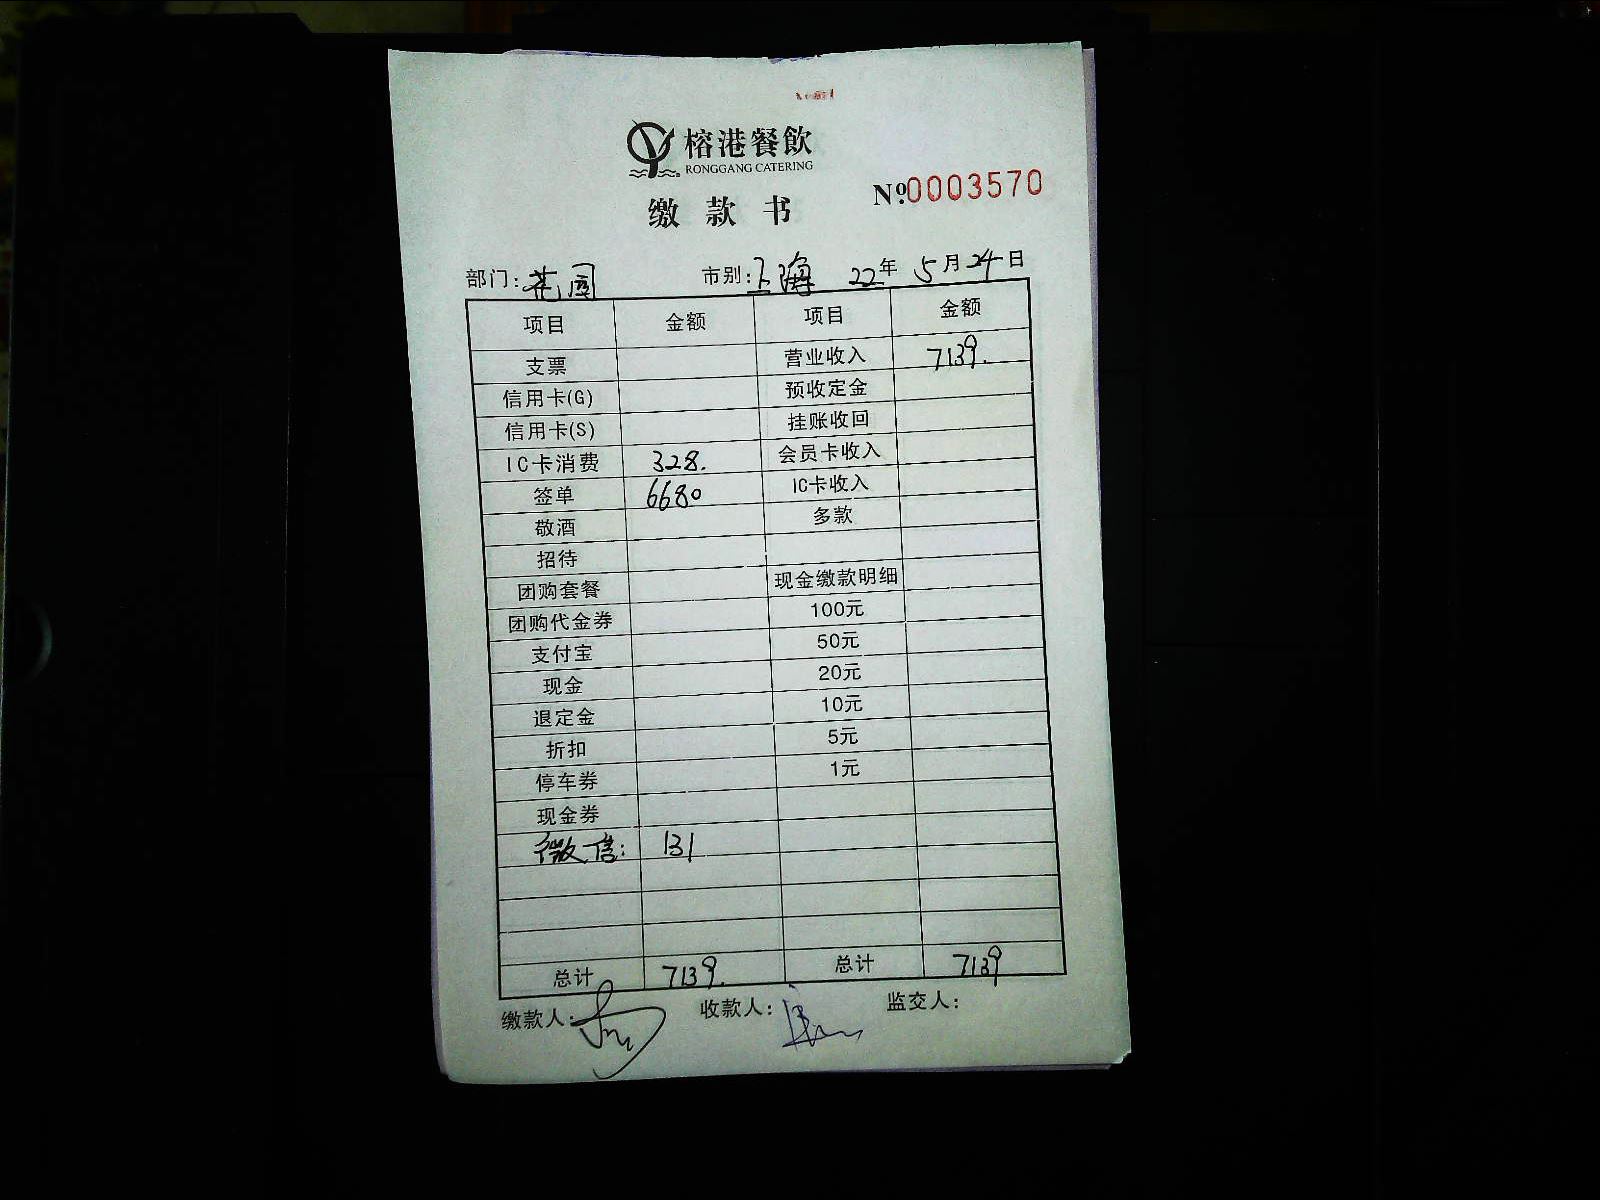 榕港餐飲
RONGGANG CATERING
缴款书
№0003570
部门:花园 市别:上海 22年5月24日
项目 金额 项目 金额
支票 营业收入 7139.
信用卡(G) 预收定金
信用卡(S) 挂账收回
IC卡消费 328. 会员卡收入
签单 6680 IC卡收入
敬酒 多款
招待
团购套餐 现金缴款明细
团购代金券 100元
支付宝 50元
现金 20元
退定金 10元
折扣 5元
停车券 1元
现金券
微信: 131
总计 7139. 总计 7139
缴款人: 收款人: 监交人: